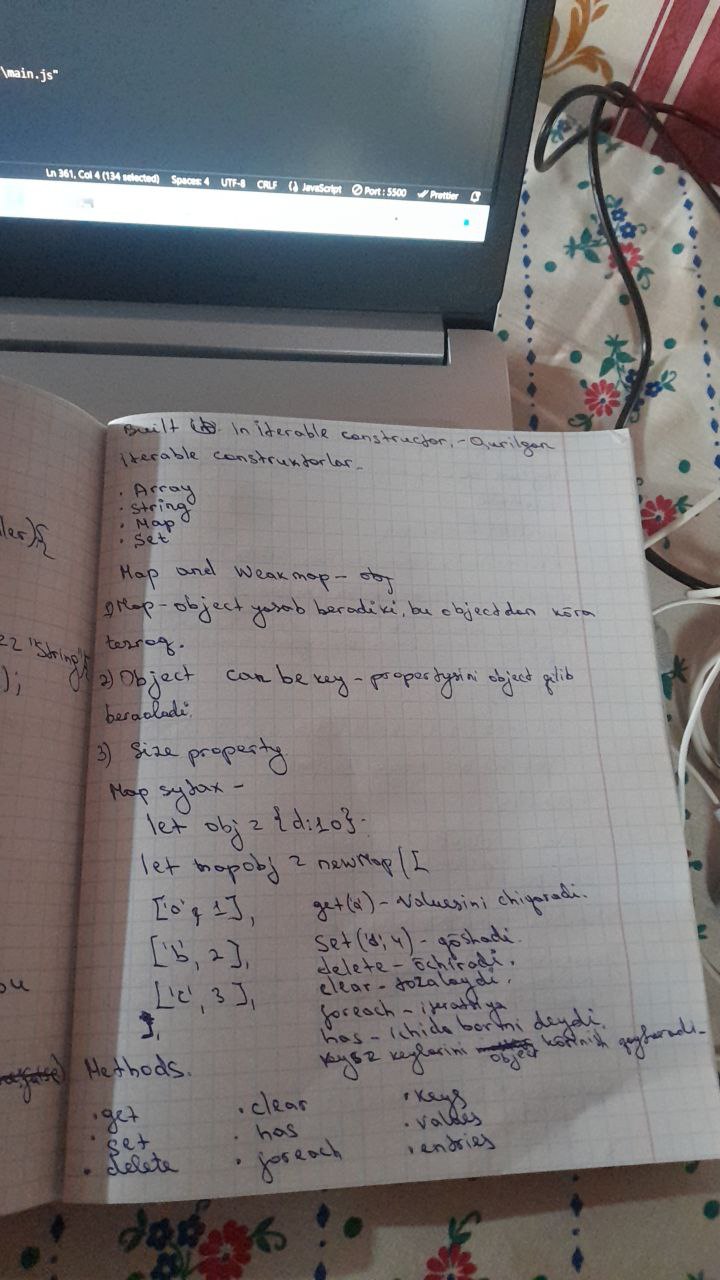 \main.js"
Ln 361, Col 4 (134 selected) Spaces: 4 UTF-8 CRLF JavaScript Port : 5500 Prettier
Built In iterable constructor, - Qurilgan
iterable construktorlar.
. Array
. String
. Map
. Set
Map and Weakmap - obj
1) Map - object yasab beradiki, bu objectdan ko̅ra
tezroq.
2) Object can be key - propertysini object qilib
beraoladi.
3) Size property
Map sytax -
let obj = {d:10};
let mapobj = newMap([
['a', 1], get('a') - valuesini chiqaradi.
['b', 2], Set('d', 4) - qo̅shadi.
delete - o̅chiradi.
['c', 3], clear - tozalaydi.
foreach - iteratsiya
], has - ichida bormi deydi.
keys = keylarini object ko̅rinish qaytaradi-
Methods.
. get . clear . keys
. set . has . values
. delete . foreach . entries
ler){
== "String"{
);